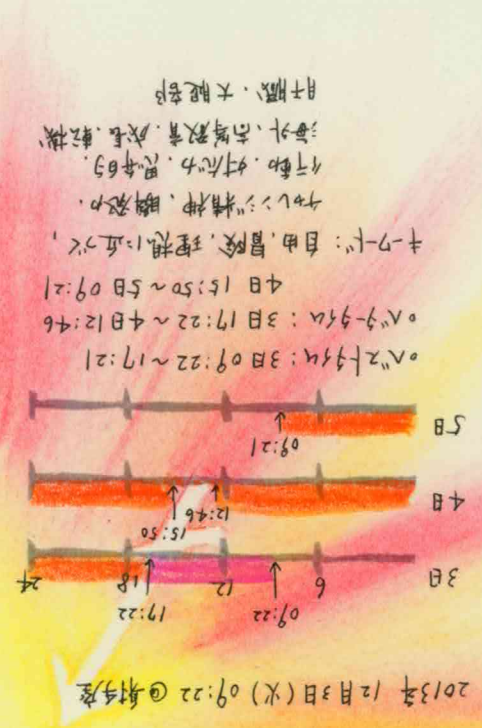 2013年 12月3日(火) 09:22 @射手座
09:22 17:22
3日 6 12 18 24
12:46 15:50
4日
09:21
5日
○ベストタイム: 3日 09:22〜17:21
○ベータータイム: 3日 17:22〜4日12:46
4日 15:50〜5日 09:21
キーワード: 自由、冒険、理想に近づく、
チャレンジ精神、瞬発力、
行動力、
海外、高等教育、成長、転機、
肝臓、大腿部